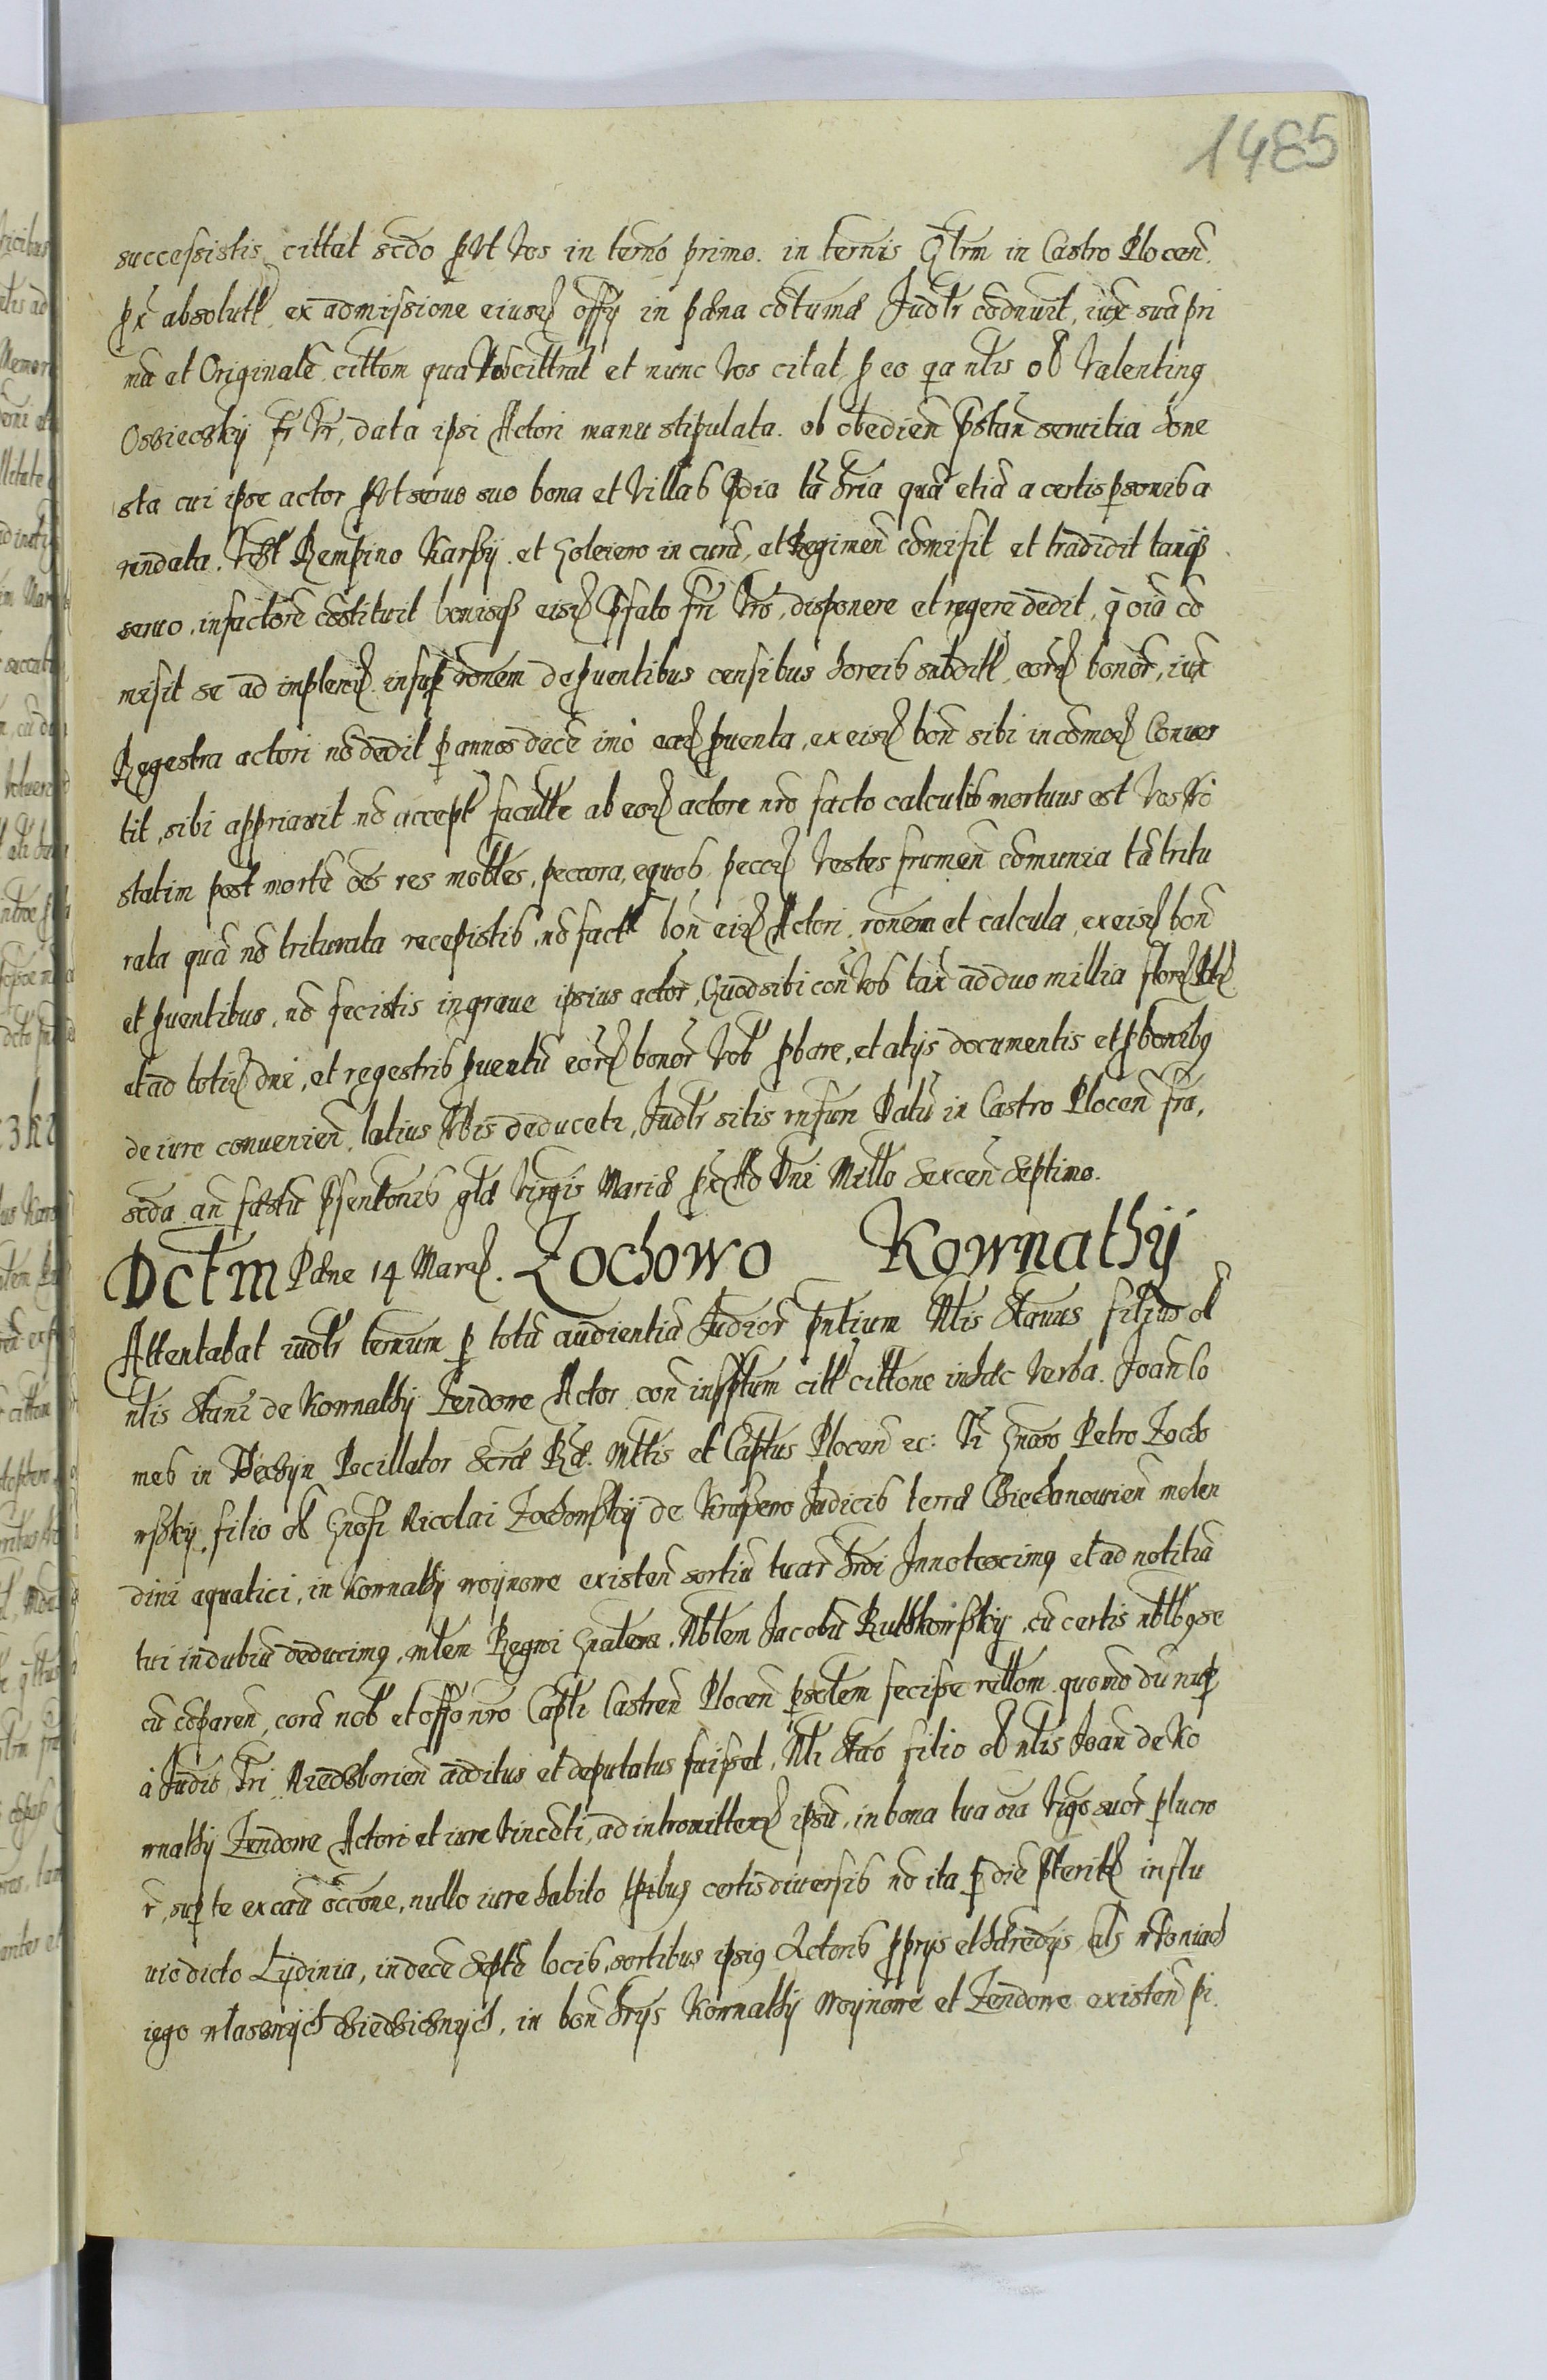 1485
successistis cittat scdo put Vos in terno primo. in ternis Qtrm in Castro Plocen.
absolutt ex admissione eiusd offy in pœna cotumæ Judlr codnuit, iux sua pri
ma et Originale cittom qua Vos cittrat et nunc Vos citat p eo qa ntis ol Valentinq
Ossieczky fr Vr, data ipsi Actori manu stipulata ob obedien pstan servitia hone
sta cui ipse actor put servo suo bona et Villas pdia ta hria qua etia a certis psonis a
rendata. Vdlt Rempino Karsy et Goleiewo in cura, et Regimen comisit et tradidit tanq
servo, infactore costituit bonisq eisd pfato fri Vro, disponere et regere dedit, q oia co
misit se ad implend insup ronem de puentibus censibus horeis subditt eord bonor, iux
Regestra actori no dedit p annos dece imo ead puenta, ex eisd bon sibi in comod Conver
tit, sibi appriavit no accept facultte ab eod actore nro facto calculo mortuus est Vos Vo
statim post morte oes res mobles, peccora, equos, peccod Vestes frumen comunia ta tritu
rata qua no triturata recepistis, no factt bon eisd Actori ronem et calcula, ex eisd bon
et puentibus, no fecistis in grave ipsius actor, Quod sibi con Vob tax ad duo millia flor
et ad totid dni, et regestris puentu eord bonor Vob pbare, et alys documentis et pbonibq
de iure convenien latius Vbis deducet, Judlr sitis rnsuri Datu in Castro Plocen fra,
scda an festu Psentonis glæ Virgis Mariæ Dni Millo Sexcen Septimo.
Dctm Pdne 14 Mard. Zochowo Kownathÿ
Attentabat iudlr ternum p totu audientia Judicor pntium Nlis Stanus filius ol
nlis Stani de Kownathy Zendowe Actor con insptum citt cittone in hæc Verba. Joan Co
mes in Thecÿn Pocillator Scræ Ræ. Mttis et Captus Plocen &c: Ti Gnoso Petro Zocho
wsky, filio ol Gnosi Nicolai Zochowsky de Krasewo Judicis terræ Chiechanovien molen
dini aquatici, in Kownathy woÿnowe existen sortiu tuar hrdi Innotescimq et ad notitia
tui indubiu deducimq, mtem Regni Gnalem. Nbtem Jacobu Rutkowsky, cu certis nblbq se
cu coparen, cora nob et offo nro Capti Castren Plocen psctem fecisse rettom quomo du nup
à Judic Tri Niedzborien additus et deputatus fuisset, Nti Stao filio ol ntis Joan de Ko
wnathy Zendowe Actori et iure Vincenti, ad intromittend ipsu, in bona tua oia Vigo suor p lucro
r, sup te ex cau occone, nullo iure habito tpibus certis diversis no ita p die pterit in flu
vio dicto Lÿdinia, in dece septe locis, sortibus ipsiq Actoris ppriis et hæredys als w toniach
iego wlasnÿch dziedzicznÿch, in bon hrys Kownathy Woÿnowe et Zendowe existen pi